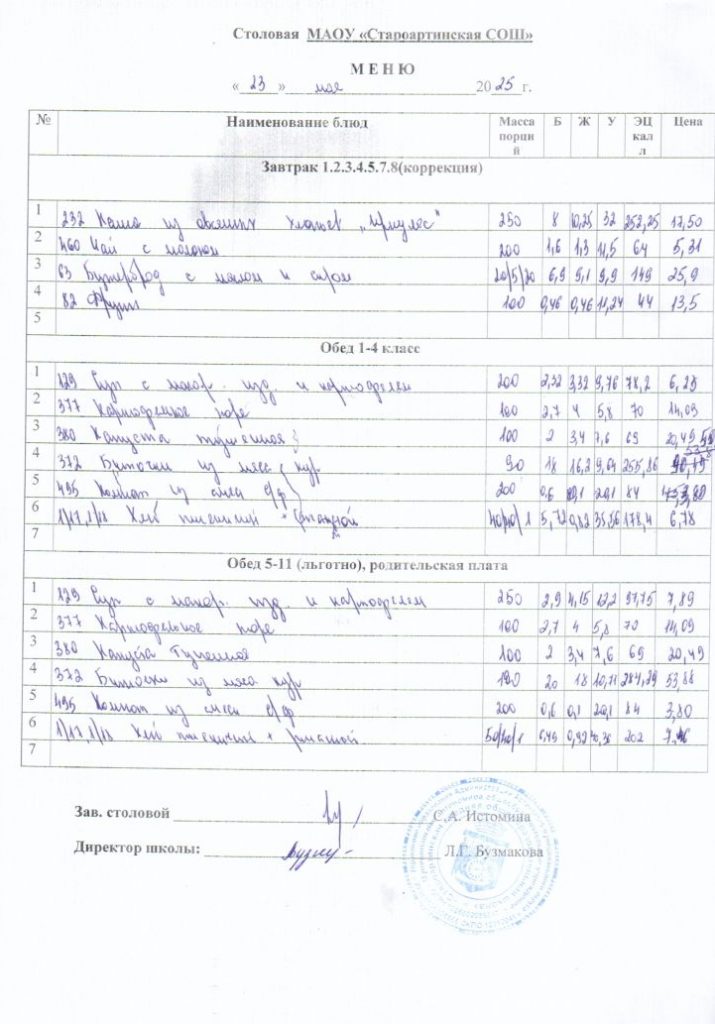 Столовая МАОУ «Староартинская СОШ»
М Е Н Ю
« 23 » мая 2025 г.
№ Наименование блюд Масса порций Б Ж У ЭЦ кал л Цена
Завтрак 1.2.3.4.5.7.8(коррекция)
1 232 Каша из овсяных хлопьев „Геркулес" 250 8 10,25 32 252,25 17,50
2 460 Чай с молоком 200 1,6 1,3 11,5 64 5,31
3 63 Бутерброд с маслом и сыром 20/5/20 6,9 9,1 9,9 149 25,9
4 82 Фрукт 100 0,46 0,46 11,24 44 13,5
5
Обед 1-4 класс
1 129 Суп с макар. изд. и картофелем 200 2,32 3,32 9,76 78,2 6,23
2 377 Картофельное пюре 100 2,7 4 5,8 70 14,09
3 380 Капуста тушенная 100 2 3,4 7,6 69 20,49
4 372 Биточки из мяса кур 90 18 16,2 9,64 255,86
5 495 Компот из смеси с/ф 200 0,6 0,1 20,1 84
6 1/17,1/18 Хлеб пшеничный + ржаной 40/40/1 5,72 0,82 35,56 178,4 6,78
7
Обед 5-11 (льготно), родительская плата
1 129 Суп с макар. изд. и картофелем 250 2,9 4,15 12,2 97,75 7,89
2 377 Картофельное пюре 100 2,7 4 5,8 70 14,09
3 380 Капуста тушенная 100 2 3,4 7,6 69 20,49
4 372 Биточки из мяса кур 100 20 18 10,71 284,29 53,88
5 495 Компот из смеси с/ф 200 0,6 0,1 20,1 84 3,80
6 1/17,1/18 Хлеб пшеничный + ржаной 50/40/1 6,49 0,92 40,36 202
7
Зав. столовой С.А. Истомина
Директор школы: Л.Г. Бузмакова